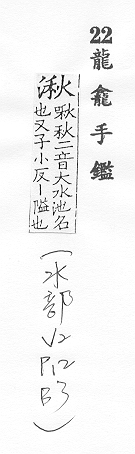 22龍龕手鑑
湫
啾秋二音大水池名
也又子小反丨隘也
(水部V2
P12
B3)